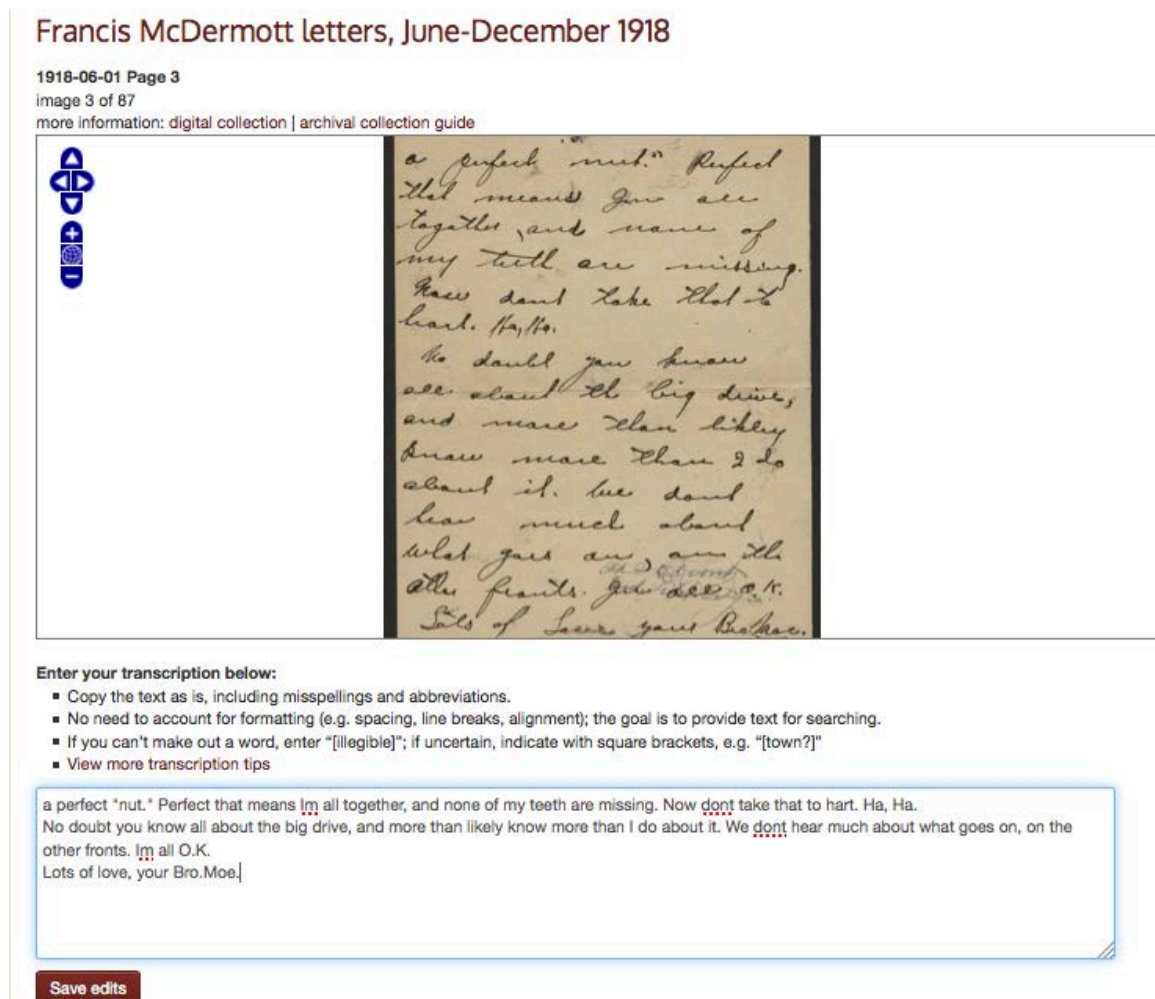 Francis McDermott letters, June-December 1918
1918-06-01 Page 3
image 3 of 87
more information: digital collection | archival collection guide
a perfect "nut." Perfect
that means Im all
together, and none of
my teeth are missing.
Now dont take that to
hart. Ha, Ha.
No doubt you know
all about the big drive,
and more than likley
know more than I do
about it. We dont
hear much about
what goes on, on the
other fronts. Im all O.K.
Lots of Love your Bro Moe.
Enter your transcription below:
▪ Copy the text as is, including misspellings and abbreviations.
▪ No need to account for formatting (e.g. spacing, line breaks, alignment); the goal is to provide text for searching.
▪ If you can't make out a word, enter "[illegible]"; if uncertain, indicate with square brackets, e.g. "[town?]"
▪ View more transcription tips
a perfect "nut." Perfect that means Im all together, and none of my teeth are missing. Now dont take that to hart. Ha, Ha.
No doubt you know all about the big drive, and more than likely know more than I do about it. We dont hear much about what goes on, on the
other fronts. Im all O.K.
Lots of love, your Bro.Moe.
Save edits